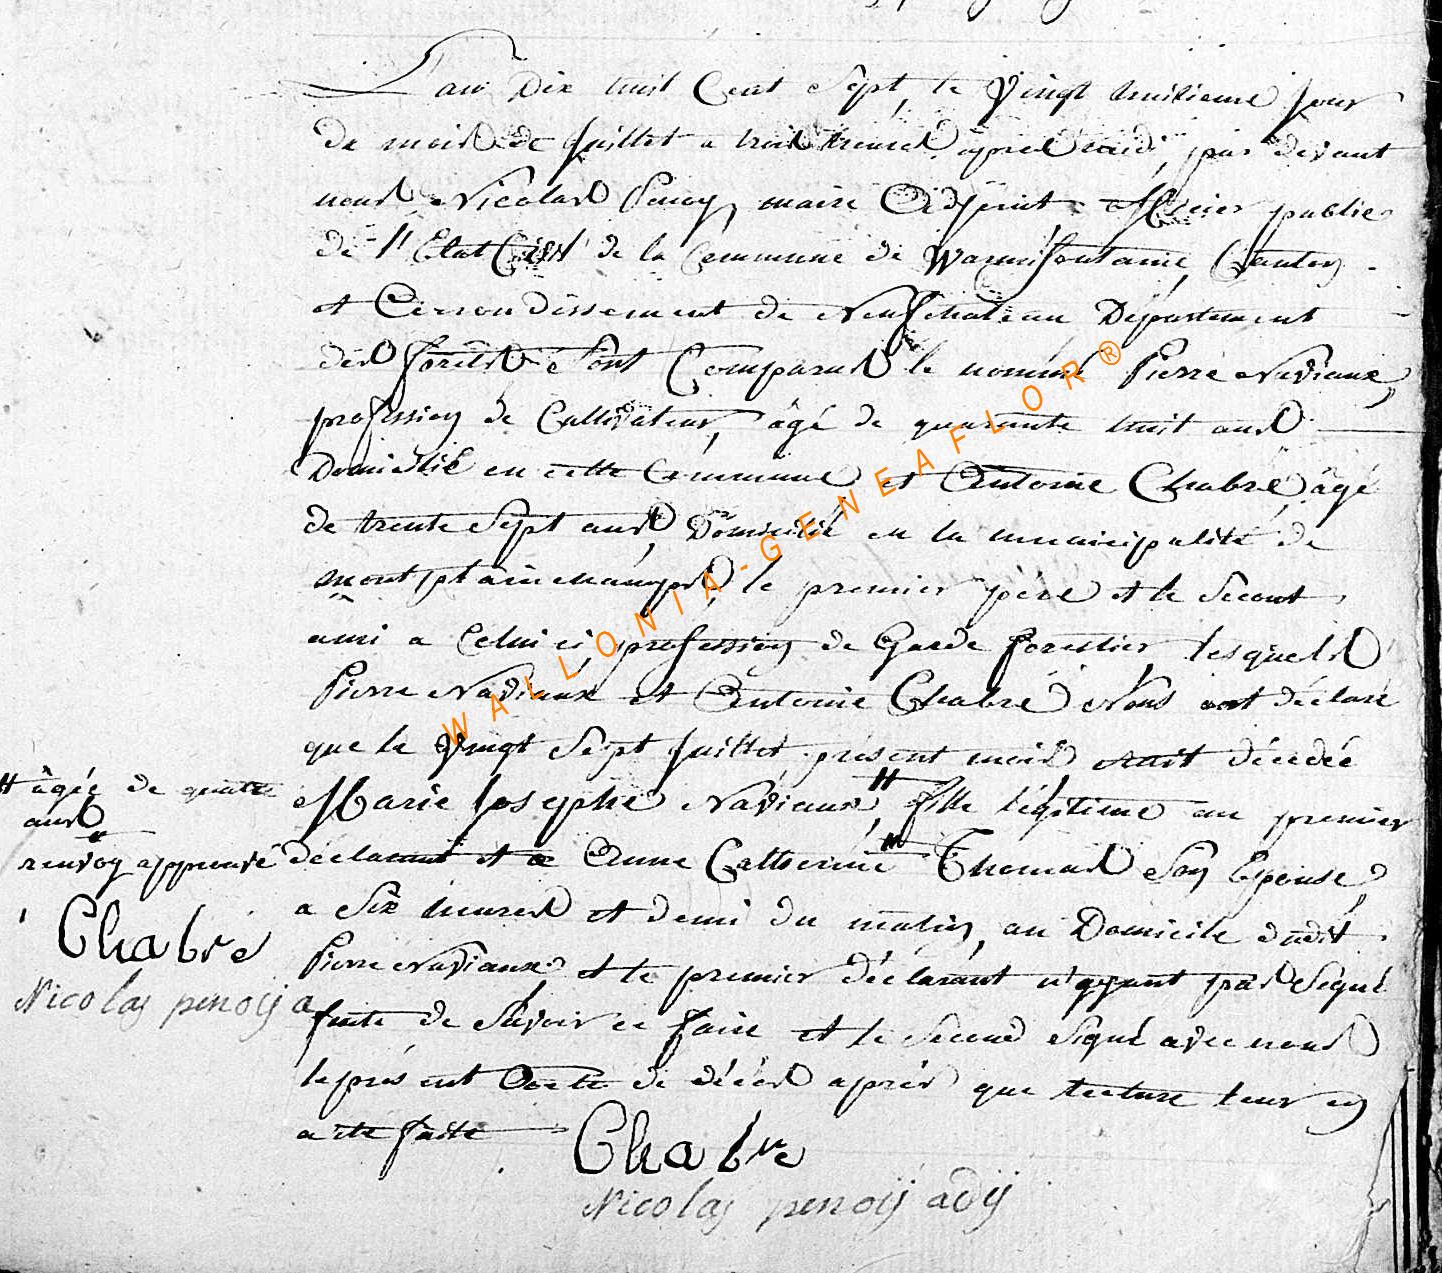 L'an Dix huit Cent Sept, le Vingt huitieme jour
du mois de juillet a trois heures après midi, par devant
nous Nicolas Penoy, maire Adjoint officier public
de l'Etat Civil de la Commune de Warmifontaine, Canton
et Arrondissement de Neufchateau Département
des forêts Sont Comparus le nommé Pierre Naviaux,
profession de Cultivateur, âgé de quarante huit ans
Domicilié en cette Commune et Antoine Chabré âgé
de trente Sept ans, Domicilié en la municipalité de
montplainchamps, le premier père et le Second
ami a Celui ci, profession de Garde forestier, lesquels
Pierre Naviaux et Antoine Chabré Nous ont déclaré
que le Vingt Sept juillet présent mois était décédée
Marie Josephe Naviaux, # fille légitime au premier
déclarant et a Anne Catherine Thomas Son Epouse,
a Six heures et demi du matin, au Domicile dudit
Pierre Naviaux et le premier déclarant n'ayant pas Signé
faute de Savoir ce faire et le Second Signé avec nous
le présent Acte de décès après que lecture leur en
a été faite
Chabré
Nicolas penoÿ adÿ
# âgée de quatre
ans
renvoy approuvé
Chabré
Nicolas penoij a
WALLONIA-GENEAFLOR®